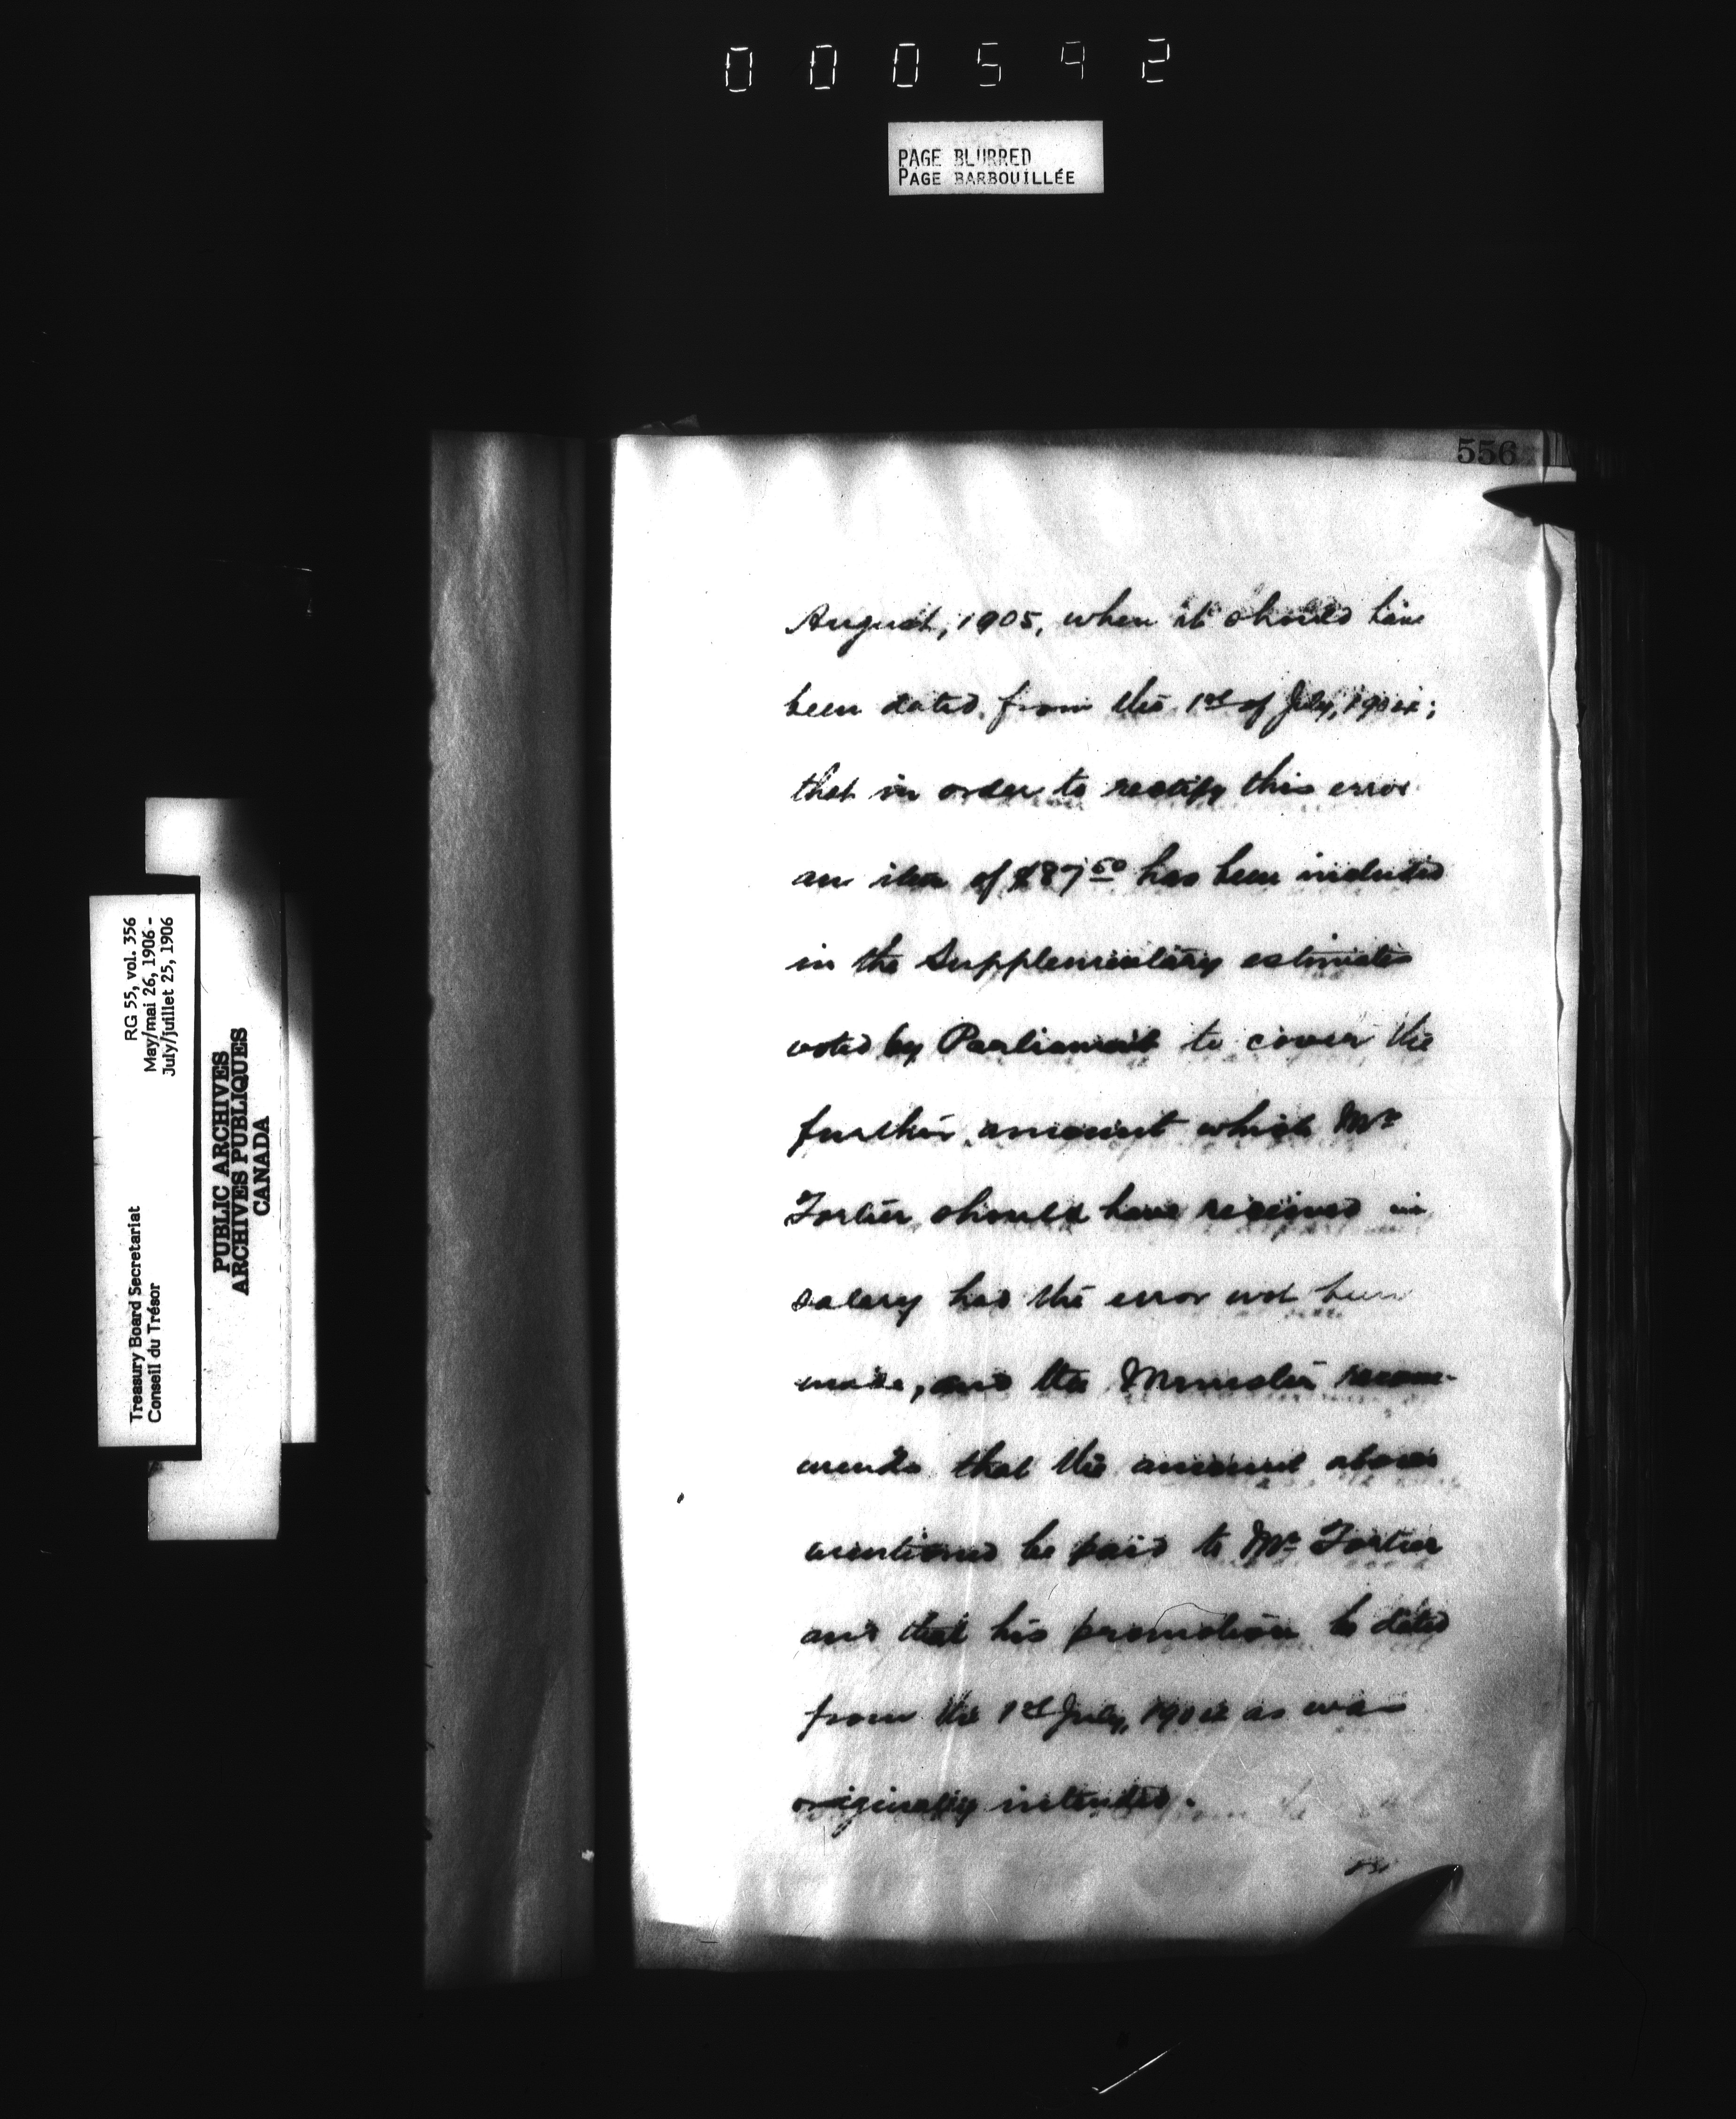 000592
PAGE BLURRED
PAGE BARBOUILLÉE
556
August, 1905, when it should have
been dated from the 1st of July, 1904;
that in order to rectify this error
an item of $87 50 has been included
in the Supplementary estimates
voted by Parliament to cover the
further amount which Mr
Fortier should have received in
salary had the error not been
made, and the Minister recom-
mends that the amount above
mentioned be paid to Mr Fortier
and that his promotion be dated
from the 1st July, 1904 as was
originally intended.
RG 55, vol. 356
May/mai 26, 1906 -
July/juillet 25, 1906
Treasury Board Secretariat
Conseil du Trésor
PUBLIC ARCHIVES
ARCHIVES PUBLIQUES
CANADA